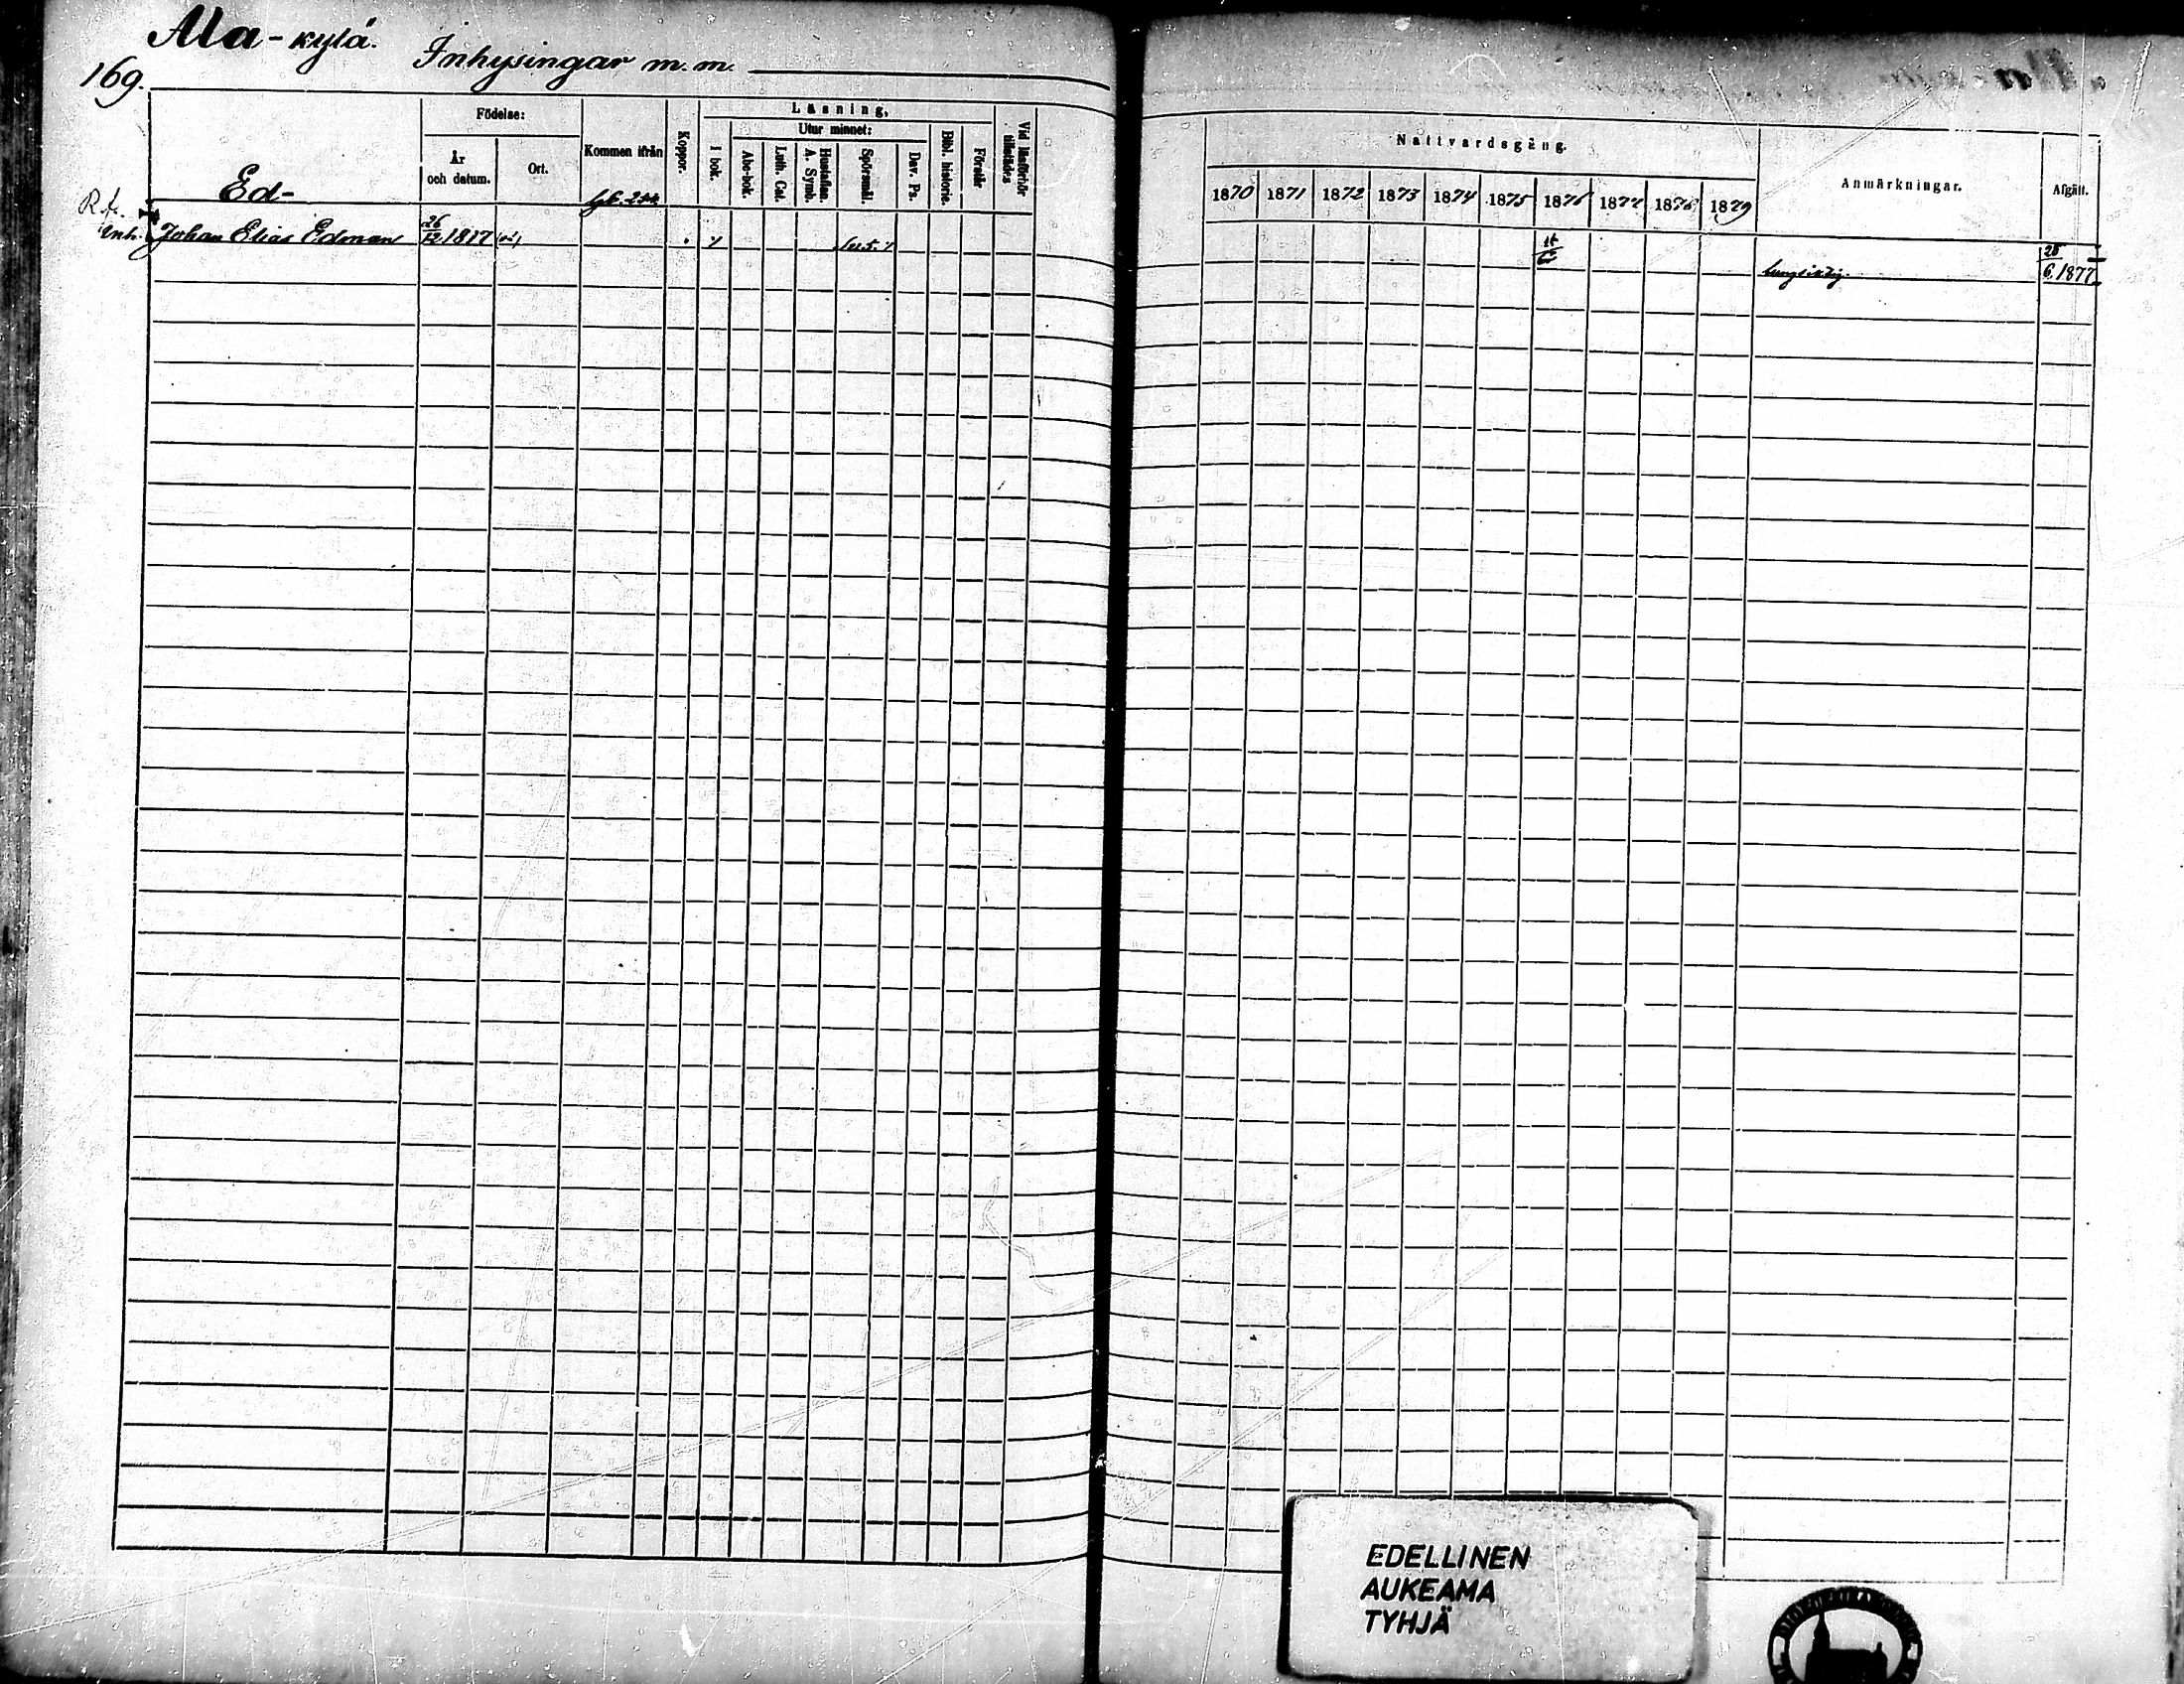 Ala-kylä.
Inhysingar m. m.
169.
Födelse:
År och datum.
Ort.
Kommen ifrån
Koppor.
Läsning,
I bok.
Utur minnet:
Abc-bok.
Luth. Cat.
Hustaflan. A. Symb.
Spörsmål.
Dav. Ps.
Bibl. historie.
Förstår
Vid läsförhör tillstädes
Nattvardsgång.
1870 1871 1872 1873 1874 1875 1876 1877 1878 1879
Anmärkningar.
Afgått.
Ed-
Inh. Johan Elias Edman 26/12 1817
Lungsiktig. 28/6. 1877
EDELLINEN
AUKEAMA
TYHJÄ